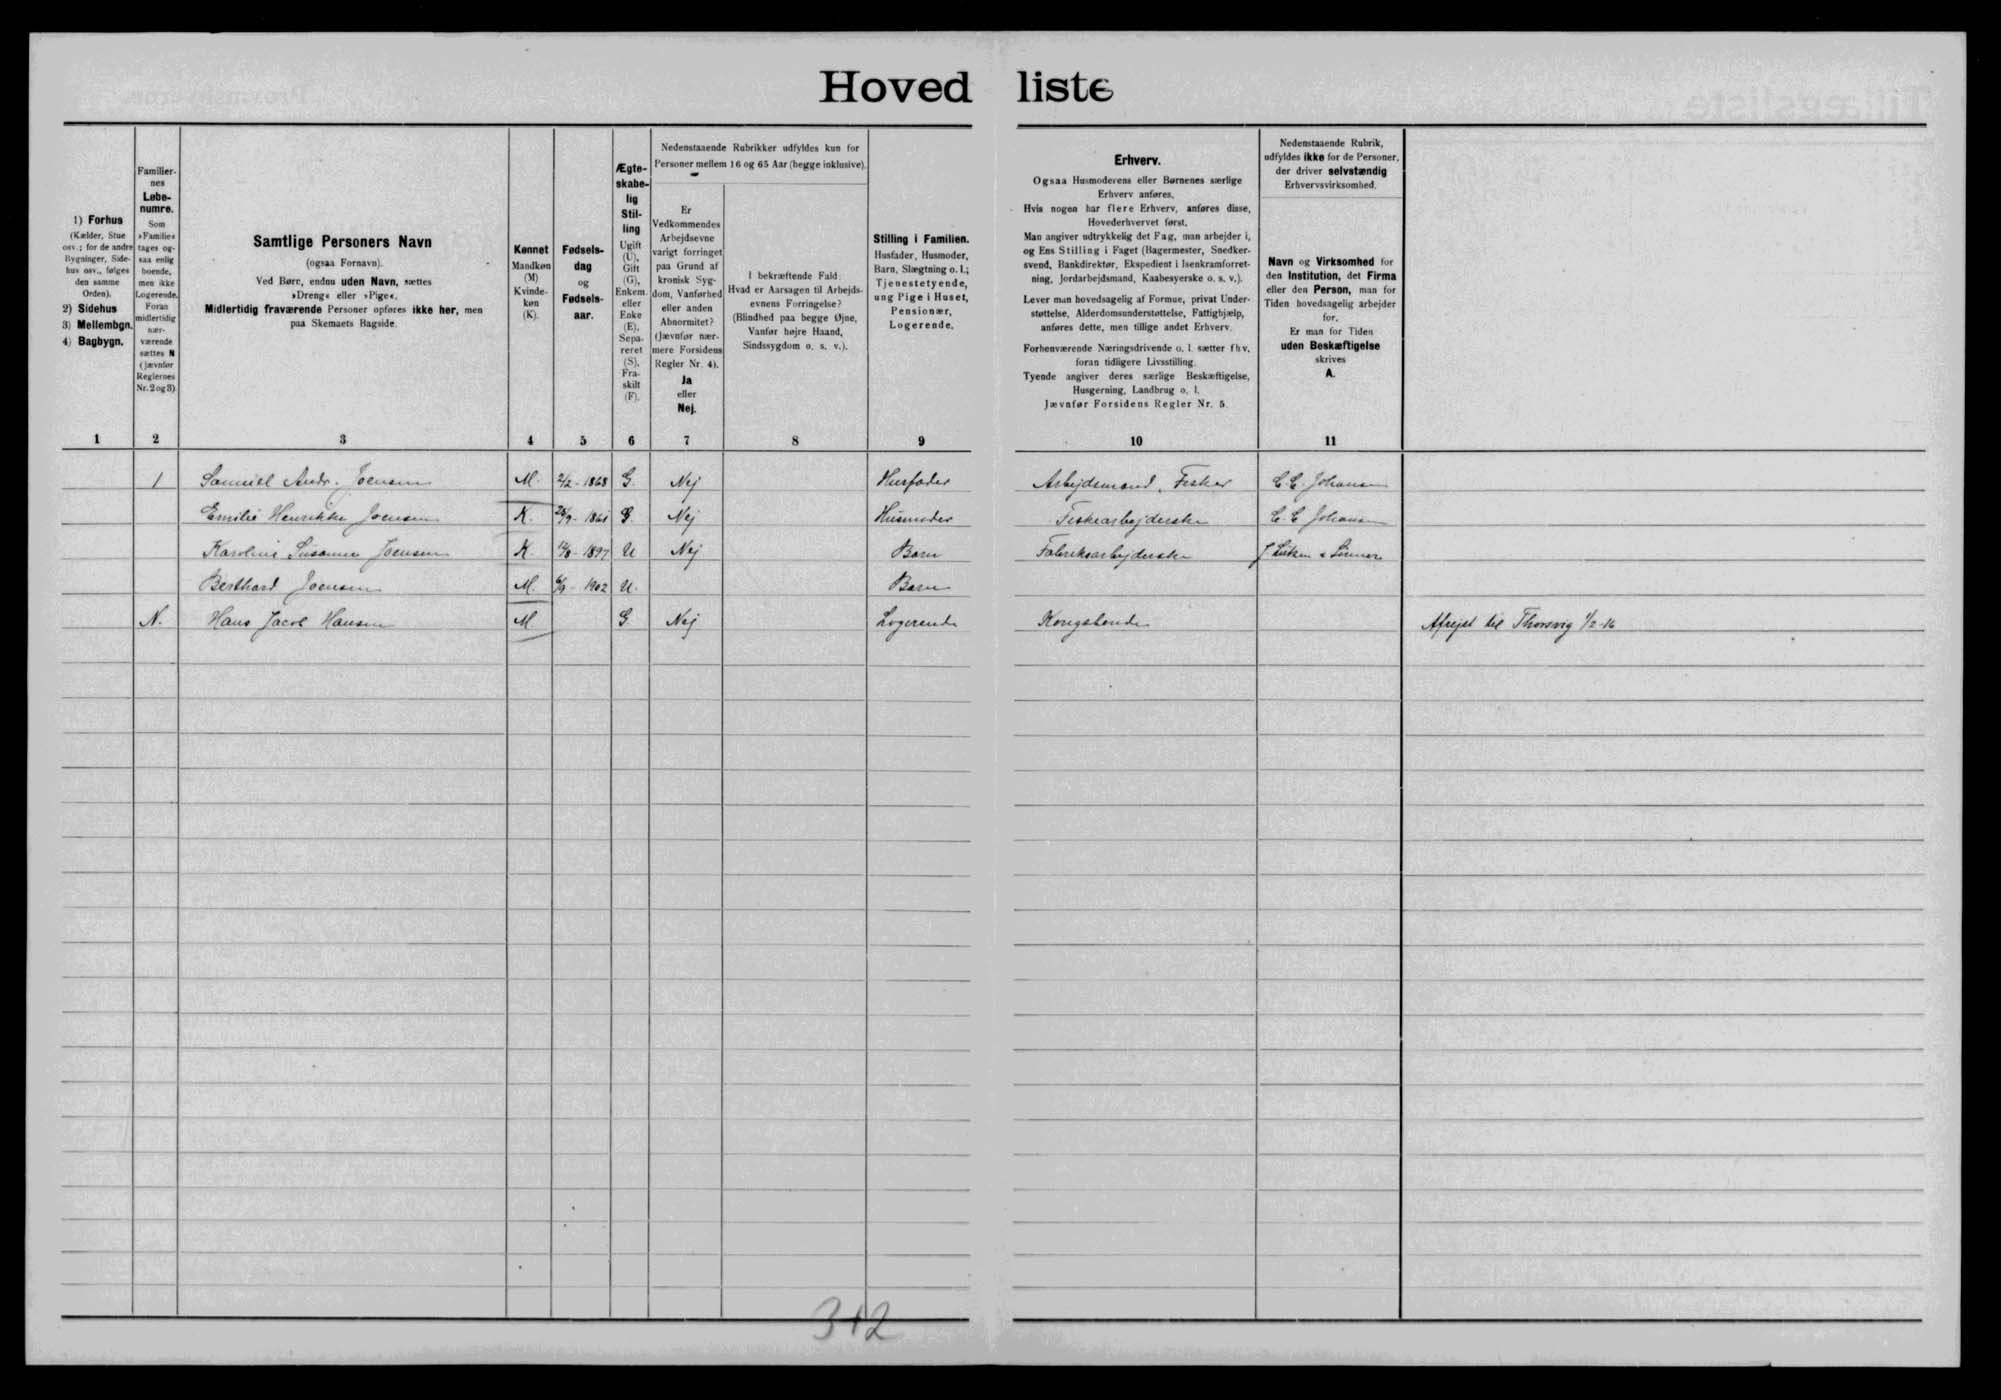 Hovedliste
1) Forhus
(Kælder, Stue
osv.; for de andre
Bygninger, Side-
hus osv., følges
den samme
Orden).
2) Sidehus
3) Mellembgn.
4) Bagbygn.
1
Familier-
nes
Løbe-
numre.
Som
»Familie«
tages og-
saa enlig
boende,
men ikke
Logerende.
Foran
midlertidig
nær-
værende
sættes N
(jævnfør
Reglernes
Nr. 2 og 3).
2
Samtlige Personers Navn
(ogsaa Fornavn).
Ved Børn, endnu uden Navn, sættes
»Dreng« eller »Pige«.
Midlertidig fraværende Personer opføres ikke her, men
paa Skemaets Bagside.
3
Kønnet
Mandkøn
(M)
Kvinde-
køn
(K).
4
Fødsels-
dag
og
Fødsels-
aar.
5
Ægte-
skabe-
lig
Stil-
ling
Ugift
(U),
Gift
(G),
Enkem.
eller
Enke
(E),
Sepa-
reret
(S),
Fra-
skilt
(F).
6
Nedenstaaende Rubrikker udfyldes kun for
Personer mellem 16 og 65 Aar (begge inklusive).
Er
Vedkommendes
Arbejdsevne
varigt forringet
paa Grund af
kronisk Syg-
dom, Vanførhed
eller anden
Abnormitet?
(Jævnfør nær-
mere Forsidens
Regler Nr. 4).
Ja
eller
Nej.
7
I bekræftende Fald:
Hvad er Aarsagen til Arbejds-
evnens Forringelse?
(Blindhed paa begge Øjne,
Vanfør højre Haand,
Sindssygdom o. s. v.).
8
Stilling i Familien.
Husfader, Husmoder,
Barn, Slægtning o. l.;
Tjenestetyende,
ung Pige i Huset,
Pensionær,
Logerende.
9
Erhverv.
Ogsaa Husmoderens eller Børnenes særlige
Erhverv anføres.
Hvis nogen har flere Erhverv, anføres disse,
Hovederhvervet først.
Man angiver udtrykkelig det Fag, man arbejder i,
og Ens Stilling i Faget (Bagermester, Snedker-
svend, Bankdirektør, Ekspedient i Isenkramforret-
ning, Jordarbejdsmand, Kaabesyerske o. s. v.).
Lever man hovedsagelig af Formue, privat Under-
støttelse, Alderdomsunderstøttelse, Fattighjælp,
anføres dette, men tillige andet Erhverv.
Forhenværende Næringsdrivende o. l. sætter fhv.
foran tidligere Livsstilling.
Tyende angiver deres særlige Beskæftigelse,
Husgerning, Landbrug o. l.
Jævnfør Forsidens Regler Nr. 5.
10
Nedenstaaende Rubrik,
udfyldes ikke for de Personer,
der driver selvstændig
Erhvervsvirksomhed.
Navn og Virksomhed for
den Institution, det Firma
eller den Person, man for
Tiden hovedsagelig arbejder
for.
Er man for Tiden
uden Beskæftigelse
skrives
A.
11
1 Samuel Andr. Joensen M. 2/2-1868 G. Nej Husfader Arbejdsmand, Fisker C.C. Johansen
Emilie Henrikke Joensen K. 1861 G. Nej Husmoder Fiskearbejderske C.C. Johansen
Karoline Susanna Joensen K. 1897 U Nej Barn Fabriksarbejderske
Berthard Joensen M. 1902 U. Barn
N. Hans Jacob Hansen M G. Nej Logerende Kongsbonde Afrejst til Thorsvig 1/2-16
312